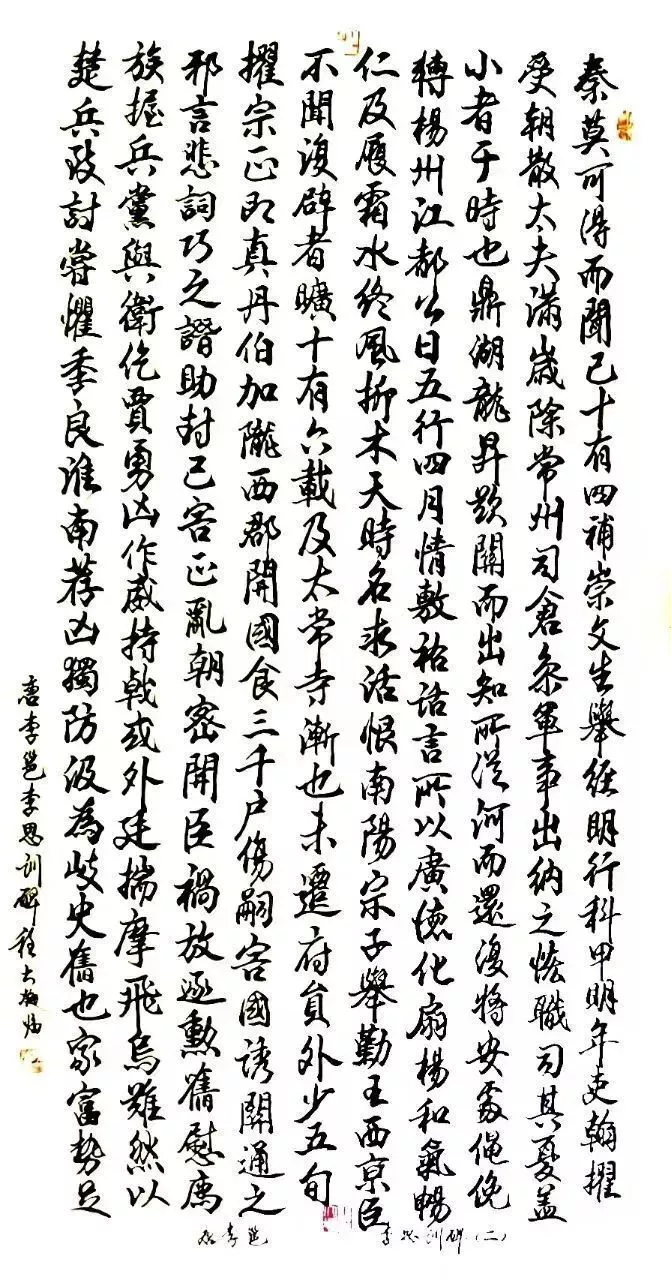 秦莫可得而聞已十有四補崇文生舉經明行科甲明年吏翰擢
受朝散太夫滿歲除常州司倉參軍事出納之恡職司其憂盖
小者于時也鼎湖龍昇欵關而出知所從河而還復將安處俛俛
轉楊州江都公日五行四月情敷祐話言所以廣德化扇楊和氣暢
仁及履霜水終風折木天時名求活恨南陽宗子舉勤王西京臣
不聞復辟者曠十有六載及太常寺漸也未遷府員外少五旬
擢宗正即真丹伯加隴西郡開國食三千戶傷嗣害國誘關通之
邪言悲詞巧之譖助封己害正亂朝密開臣禍放逐勲舊慰薦
族握兵黨與衛仡賈勇凶作威持戟或外廷揣摩飛烏雖然以
楚兵致討嘗懼季良淮南荐凶獨防汲為岐史舊也家富勢足
唐李邕李思訓碑
李邕
李思訓碑（二）